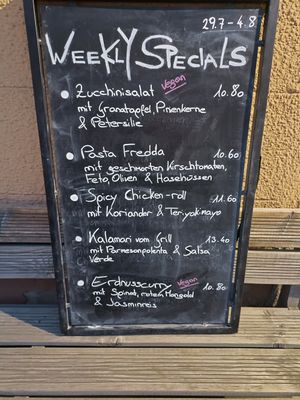 29.7 - 4.8
WEEKLY SPECIALS
Zucchinisalat Vegan 10.80
mit Granatapfel, Pinienkerne
& Petersilie
Pasta Fredda 10.60
mit geschmorten Kirschtomaten,
Feta, Oliven & Haselnüssen
Spicy Chicken-roll 11.60
mit Koriander & Teriyakimayo
Kalamari vom Grill 13.40
mit Parmesanpolenta & Salsa
Verde
Erdnusscurry Vegan 10.80
mit Spinat, rotem Mangold
& Jasminreis